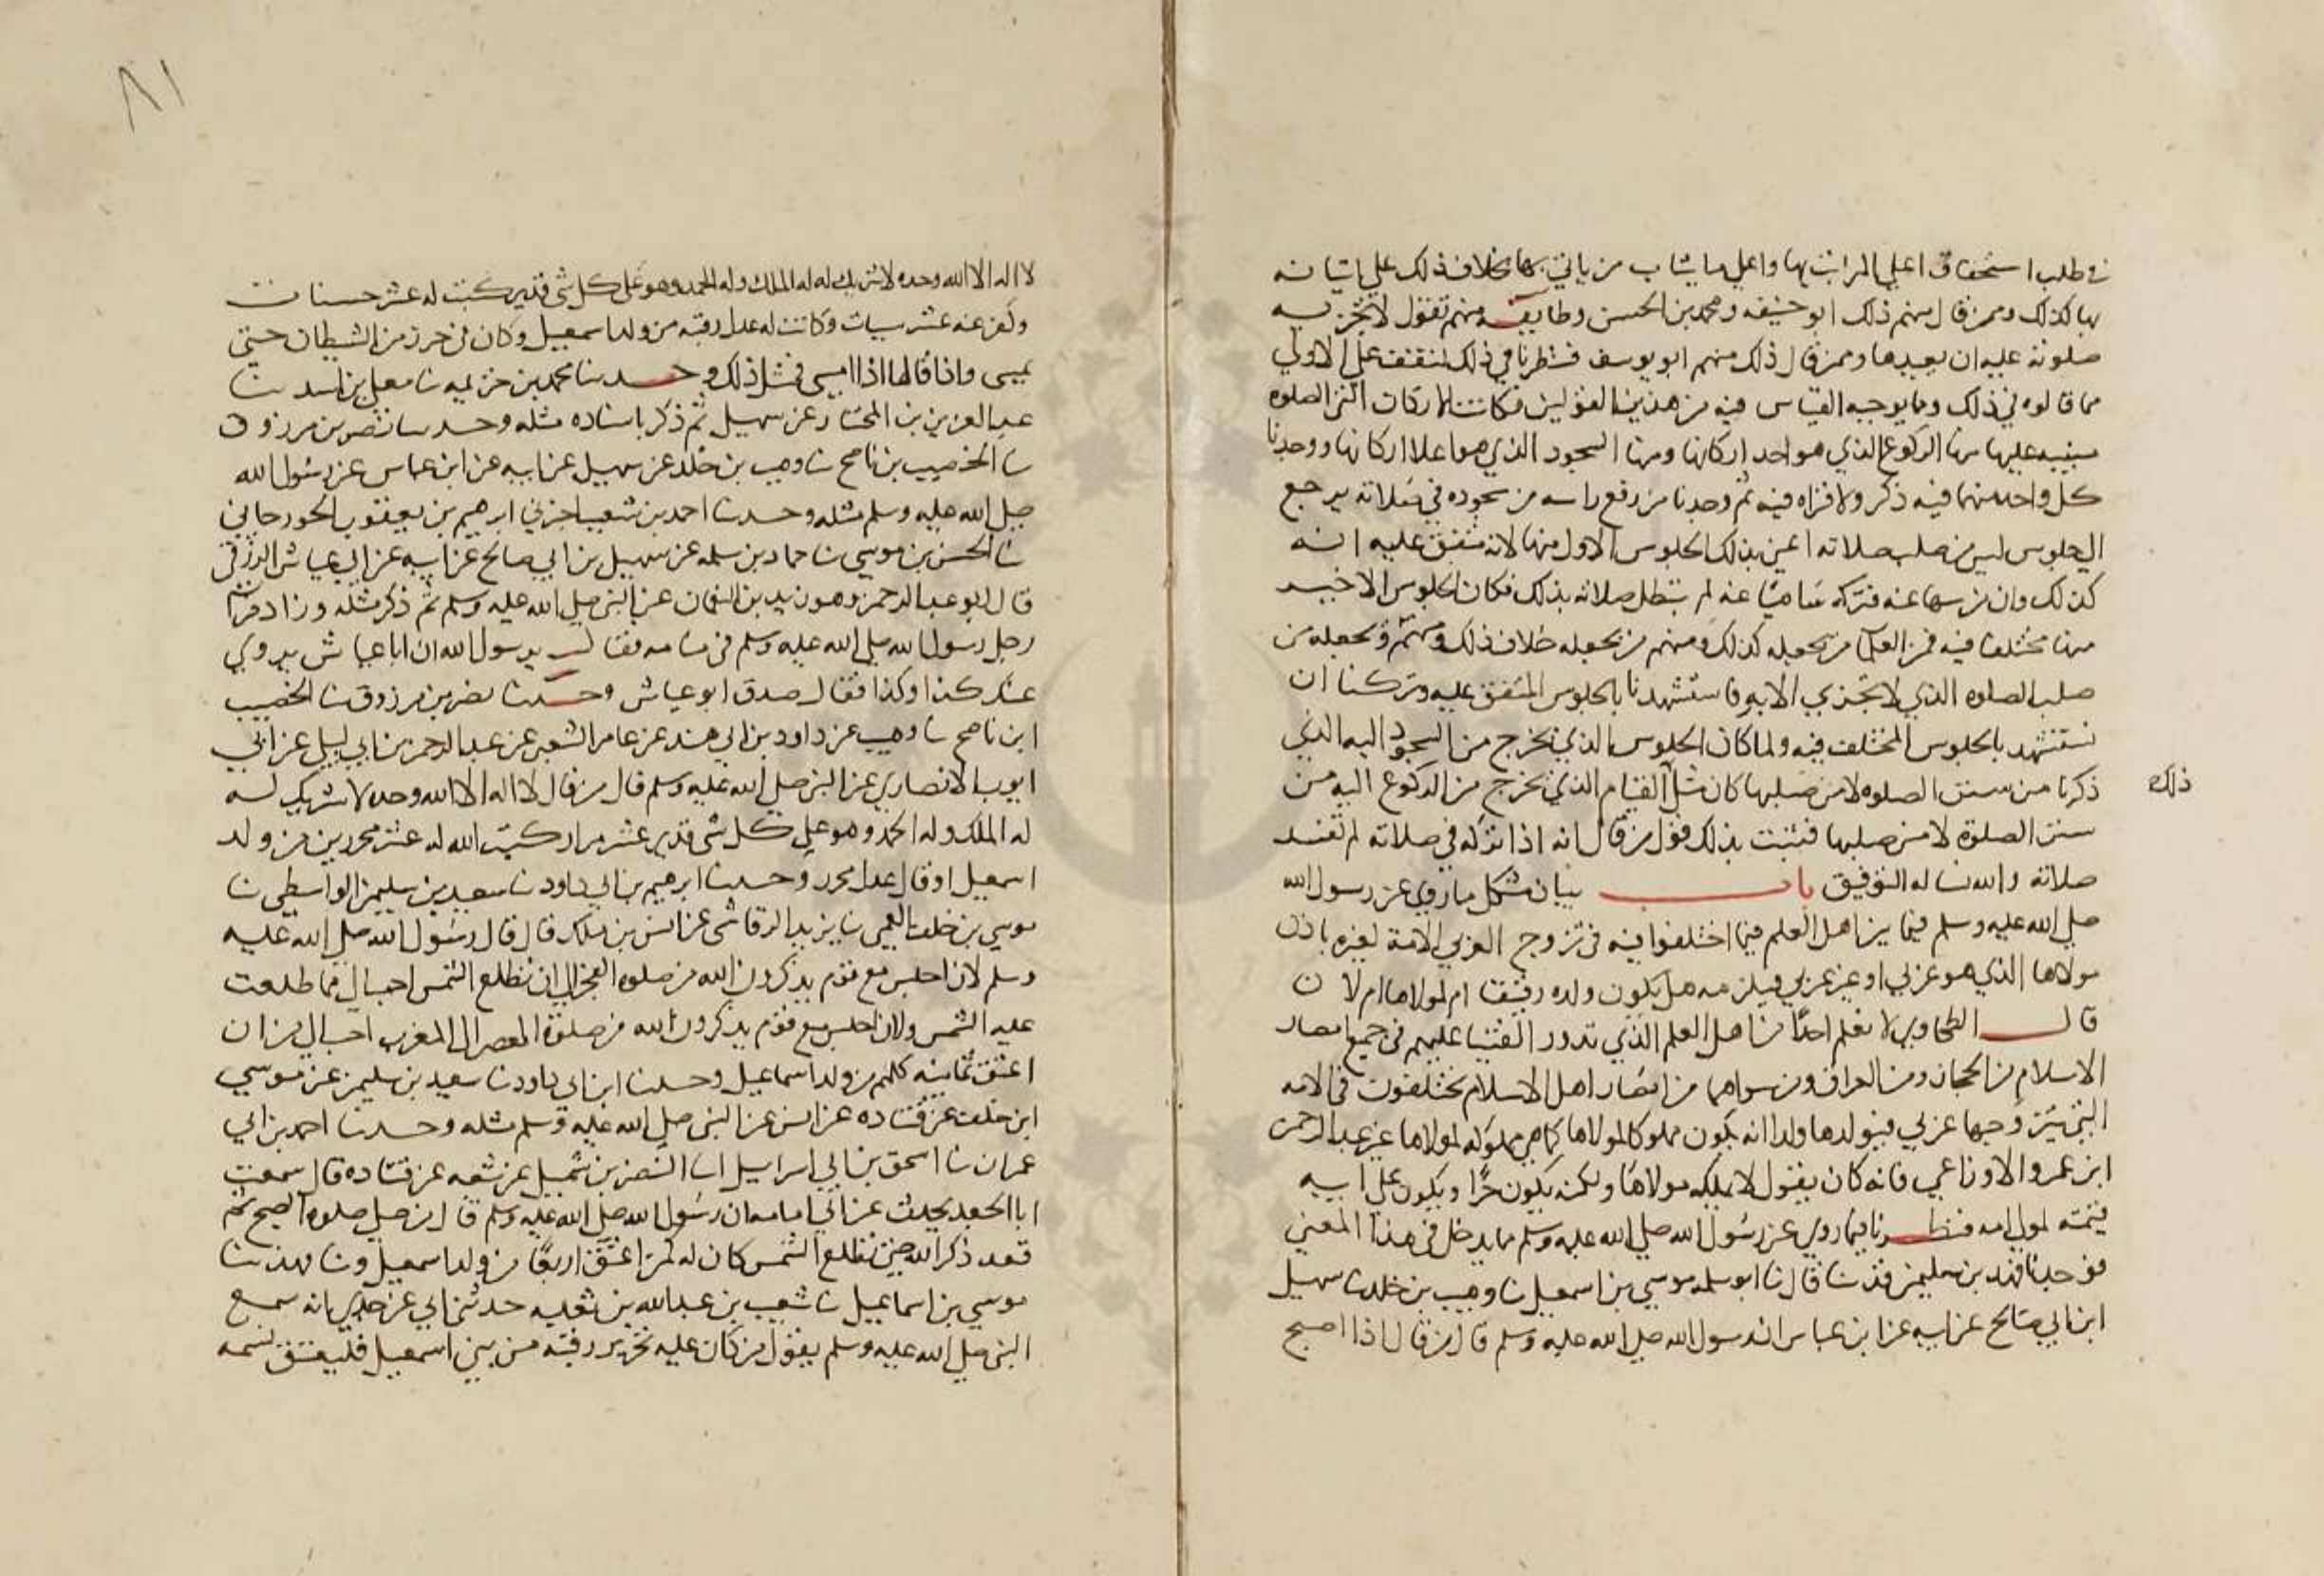 في طلب استحقاق اعلي المراتب بها واعلي ما يثاب من ياتي بها بخلاف ذلك علي اتيانه
بها كذلك وممن قال منهم ذلك ابو حنيفه ومحمد بن الحسن وطايفه منهم تقول لا تجزيه
صلوته عليه ان يعيدها وممن قال ذلك منهم ابو يوسف فنظرنا في ذلك لنقف علي الاولي
مما قالوه في ذلك وما يوجبه القياس فيه من هذين القولين فكانت الاركان التي الصلوه
مبنيه عليها منها الركوع الذي هو احد اركانها ومنها السجود الذي هو اعلا اركانها ووجدنا
كل واحد منهما فيه ذكر ولا قراه فيه ثم وجدنا من رفع راسه من سجوده في صلاته يرجع
الي جلوس ليس من صلب صلاته اعني بذلك الجلوس الاول منها لانه متفق عليه انه
كذلك وان من سها عنه فتركه ساهيا عنه لم تبطل صلاته بذلك فكان الجلوس الاخير
منها مختلفا فيه فمن العلما من يجعله كذلك ومنهم من يجعله خلاف ذلك ومنهم من يجعله من
صلب الصلوه الذي لا تجزي الا به فاستشهدنا بالجلوس المتفق عليه وتركنا ان
نستشهد بالجلوس المختلف فيه ولما كان الجلوس الذي يخرج من السجود اليه الذي
ذكرنا من سنن الصلوه لا من صلبها كان مثل القيام الذي يخرج من الركوع اليه من
ذلك
سنن الصلوة لا من صلبها فثبت بذلك قول من قال انه اذا تركه في صلاته لم تفسد
صلاته والله نساله التوفيق باب بيان مشكل ما روي عن رسول الله
صلي الله عليه وسلم فيما بين اهل العلم فيما اختلفوا فيه في تزوج العربي الامة لغيره باذن
مولاها الذي هو عربي او غير عربي فيلز مه هل يكون ولده رقيقا ام لمولاها ام لا ن
قال الطحاوي لا نعلم احدًا من اهل العلم الذي تدور الفتيا عليهم في جميع امصار
الاسلام من الحجاز ومن العراق ومن سواهما من امصار اهل الاسلام يختلفون في الامه
التي يتزوجها عربي فيولدها ولدا انه يكون مملوكا لمولاها كما هي مملوكه لمولاها غير عبد الرحمن
ابن عمرو الاوزاعي فانه كان يقول لا يملكه مولاها ولكنه يكون حرًا ويكون علي ابيه
قيمته لمولي امه فنظرنا فيما روي عن رسول الله صلي الله عليه وسلم ما يدخل في هذا المعني
فوجدنا فهد بن سليمن قد نا قال نا ابو سلمه موسي بن اسمعيل نا وهيب بن خلد نا سهيل
ابن ابي صالح عن ابيه عن ابن عباس ان رسول الله صلي الله عليه وسلم قال من قال اذا اصبح
٨١
لا اله الا الله وحده لا شريك له له الملك وله الحمد وهو علي كل شي قدير كتبت له عشر حسنات
وكفر عنه عشر سيات وكانت له عدل رقبه من ولد اسمعيل وكان في حرز من الشيطان حتي
يمسي واذا قالها اذا امسي فمثل ذلك وحدثنا محمد بن خزيمه نا معلي بن اسد نا
عبد العزيز بن المختار عن سهيل ثم ذكر باسناده مثله وحدثنا نصر بن مرزوق
نا الخصيب بن ناصح نا وهيب بن خلد عن سهيل عن ابيه عن ابن عباس عن رسول الله
صلي الله عليه وسلم مثله وحدثنا احمد بن شعيب اخبرني ابرهيم بن يعقوب الجورجاني
نا الحسن بن موسي نا حماد بن سلمه عن سهيل بن ابي صالح عن ابيه عن ابي عياش الزرقي
قال ابو عبد الرحمن وهو زيد بن النعمان عن النبي صلي الله عليه وسلم ثم ذكر مثله وزاد فراي
رجل رسول الله صلي الله عليه وسلم في منامه فقال يرسول الله ان ابا عياش يروي
عنك كذا وكذا فقال صدق ابو عياش وحدثنا نصر بن مرزوق نا الخصيب
ابن ناصح نا وهيب عن داود بن ابي هند عن عامر الشعبي عن عبد الرحمن بن ابي ليلي عن ابي
ايوب الانصاري عن النبي صلي الله عليه وسلم قال من قال لا اله الا الله وحده لا شريك له
له الملك وله الحمد وهو علي كل شي قدير عشر مرار كتب الله له عشر محررين من ولد
اسمعيل او قال عدل محرر وحدثنا ابرهيم بن ابي داود نا سعيد بن سليمن الواسطي نا
موسي بن خلف العمي نا يزيد الرقاشي عن انس بن ملك قال قال رسول الله صلي الله عليه
وسلم لان اجلس مع قوم يذكرون الله من صلوه الفجر الي ان تطلع الشمس احب الي مما طلعت
عليه الشمس ولان اجلس مع قوم يذكرون الله من صلوة العصر الي المغرب احب الي من ان
اعتق ثمانيه كلهم من ولد اسماعيل وحدثنا ابن ابي داود نا سعيد بن سليمن عن موسي
ابن خلف عن قتاده عن انس عن النبي صلي الله عليه وسلم مثله وحدثنا احمد بن ابي
عمران نا اسحق بن ابي اسرايل انا النضر بن شميل عن شعبه عن قتاده قال سمعت
ابا الجعد يحدث عن ابي امامه ان رسول الله صلي الله عليه وسلم قال من صلي صلوه الصبح ثم
قعد ذكر الله حتي تطلع الشمس كان له كمن اعتق اربعًا من ولد اسمعيل ونا فهد نا
موسي بن اسماعيل نا شعيب بن عبد الله بن ثعلبه حدثني ابي عن جدي انه سمع
النبي صلي الله عليه وسلم يقول من كان عليه تحرير رقبه من بني اسمعيل فليعتق نسمه